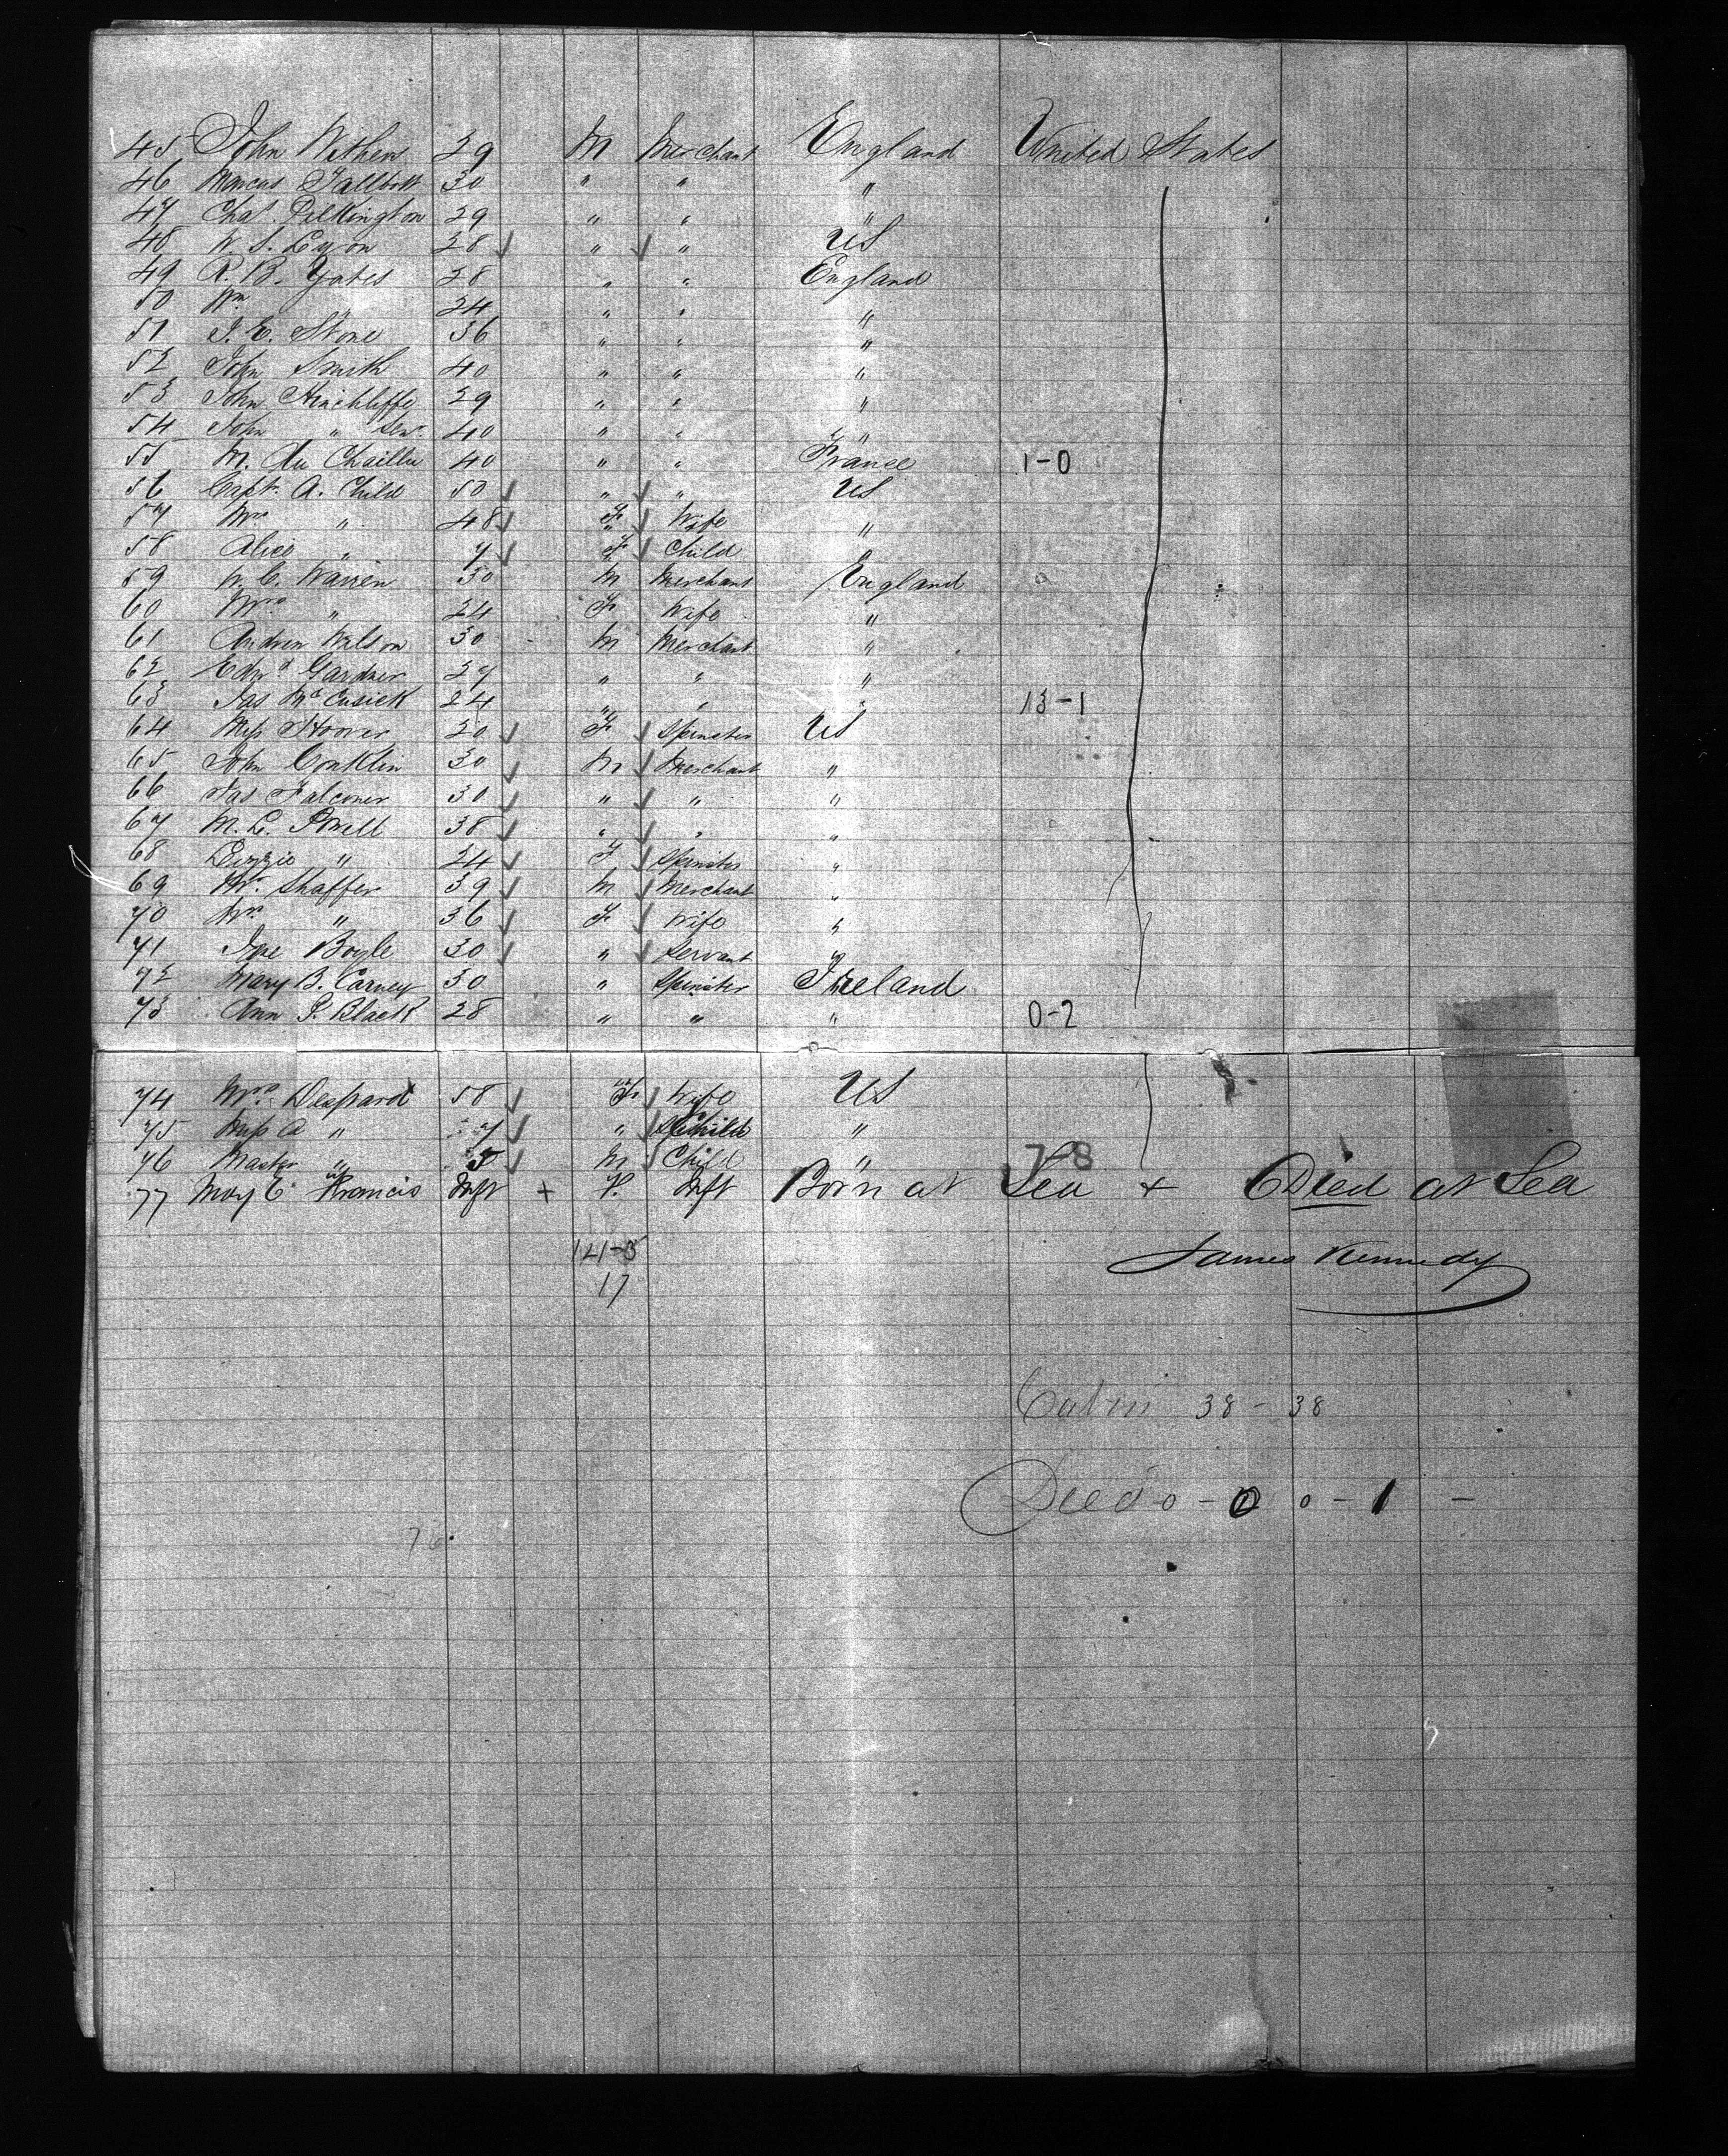 45 John Withers 29 M Merchant England United States
46 Marcus Tallbott 30 " " "
47 Chas. Pilkington 29 " " "
48 W. S. Lyon 28 ✓ " ✓ " US
49 R. B. Yates 28 " " England
50 Wm. " 24 " " "
51 J. E. Stone 36 " " "
52 John Smith 40 " " "
53 John Hinchliffe 29 " " "
54 John " Senr. 40 " " "
55 M. Du Chaillu 40 " " France 1-0
56 Capt. A. Child 50 ✓ " ✓ " US
57 Mrs " 48 ✓ F ✓ Wife "
58 Alice " 7 ✓ F ✓ Child
59 W. C. Warren 30 M Merchant England
60 Mrs " 24 F Wife "
61 Andrew Wilson 30 M Merchant "
62 Edwd Gardner 27 " " "
63 Jas McCusick 24 " " " 13-1
64 Miss Hoover 20 ✓ F ✓ Spinster US
65 John Conklin 30 ✓ M ✓ Merchant "
66 Jas Falconer 30 ✓ " ✓ " "
67 M. L. Powell 38 ✓ " ✓ " "
68 Lizzie " 24 ✓ F ✓ Spinster "
69 Mr. Shaffer 39 ✓ M ✓ Merchant "
70 Mrs " 36 ✓ F ✓ Wife "
71 Boyle 30 ✓ " ✓ Servant "
72 Mary B. Carney 30 " Spinster Ireland
73 Ann J. Black 28 " " " 0-2
74 Mrs. Despard 58 ✓ F ✓ Wife US
75 Miss A " 7 ✓ " ✓ Child "
76 Master " 5 ✓ M ✓ Child " 7-8
77 May E Francis Inft + F. Inft Born at Sea + Died at Sea
121-5
James Kennedy
17
Cabin 38 - 38
Died 0 - 0 0 - 1 -
76